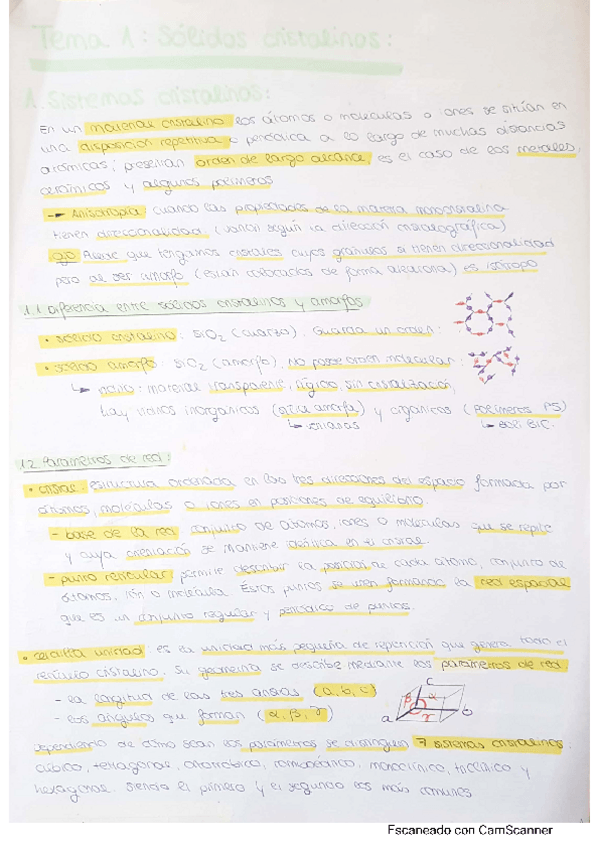 Tema 1: Sólidos cristalinos:
1. Sistemas cristalinos:
En un material cristalino los átomos o moléculas o iones se sitúan en
una disposición repetitiva o periódica a lo largo de muchas distancias
atómicas; presentan orden de largo alcance, es el caso de los metales,
cerámicos y algunos polímeros
→ Anisotropía cuando las propiedades de la materia monocristalina
tienen direccionalidad (varían según la dirección cristalográfica)
que tengamos cristales cuyos gránulos si tienen direccionalidad
pero al ser amorfo (están colocados de forma aleatoria) es isótropo
1.1 Diferencia entre sólidos cristalinos y amorfos
• sólido cristalino: SiO2 (cuarzo). Guarda un orden:
• sólido amorfo: SiO2 (amorfo), No posee orden molecular:
↳ vidrio: material transparente, rígido, sin cristalización,
hay vidrios inorgánicos (sílice amorfa) y orgánicos (Polímeros PS)
↳ ↳ boli BIC.
1.2 Parámetros de red:
• cristal: estructura ordenada en las tres direcciones del espacio formada por
átomos, moléculas o iones en posiciones de equilibrio.
- base de la red: conjunto de átomos, iones o moléculas que se repite
y cuya orientación se mantiene idéntica en el cristal.
- punto reticular: permite describir la posición de cada átomo, conjunto de
átomos, ión o molécula. Éstos puntos se unen formando la red espacial
que es un conjunto regular y periódico de puntos.
• celdilla unidad: es la unidad más pequeña de repetición que genera todo el
retículo cristalino. Su geometría se describe mediante los parámetros de red
- la longitud de las tres aristas (a, b, c)
- los ángulos que forman (α, β, γ)
c
β α
a γ b
Dependiendo de cómo sean los parámetros se distinguen 7 sistemas cristalinos:
cúbico, tetragonal, ortorrómbico, romboédrico, monoclínico, triclínico y
hexagonal. Siendo el primero y el segundo los más comunes
Escaneado con CamScanner